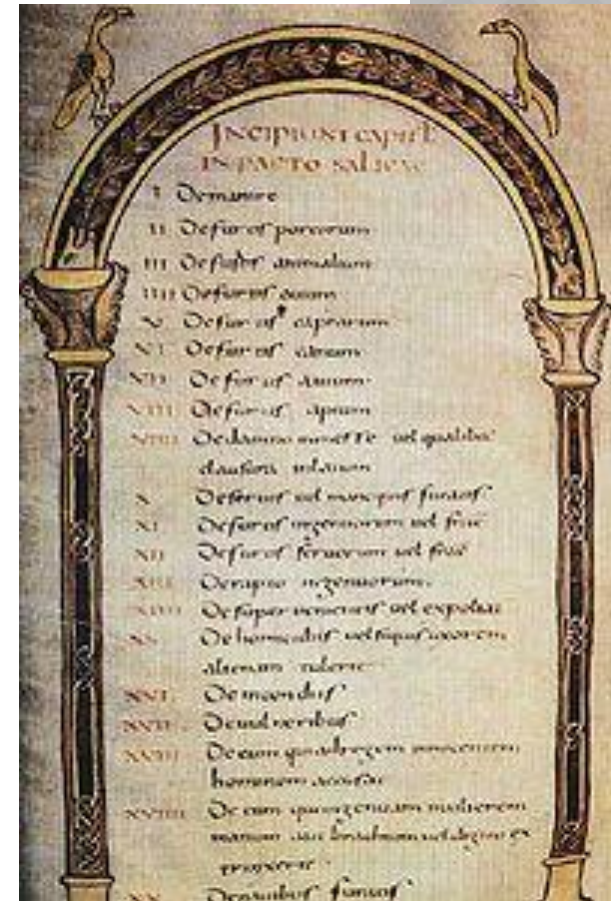 INCIPIUNT CAPIT
IN PACTO SALICAE
I De mannire
II De furtis porcorum
III De furtis animalium
IIII De furtis ouium
V De furtis caprarum
VI De furtis canum
VII De furtis auium
VIII De furtis apium
VIIII De damno in messe uel qualibet
clausura
X De seruis uel mancipiis furatis
XI De furtis ingenuorum uel
XII De furtis seruorum uel
XIII De rapto ingenuorum
XIIII De superuenientis uel expoliat
XV De homicidiis uel si quis uxorem
alienam tulerit
XVI De incendiis
XVII De uulneribus
XVIII De eum qui ad regem innocentem
hominem accusat
XVIIII De eum qui ingenuam mulierem
manum aut brachium uel digitum ex
trinxerit
XX De nauibus furatis